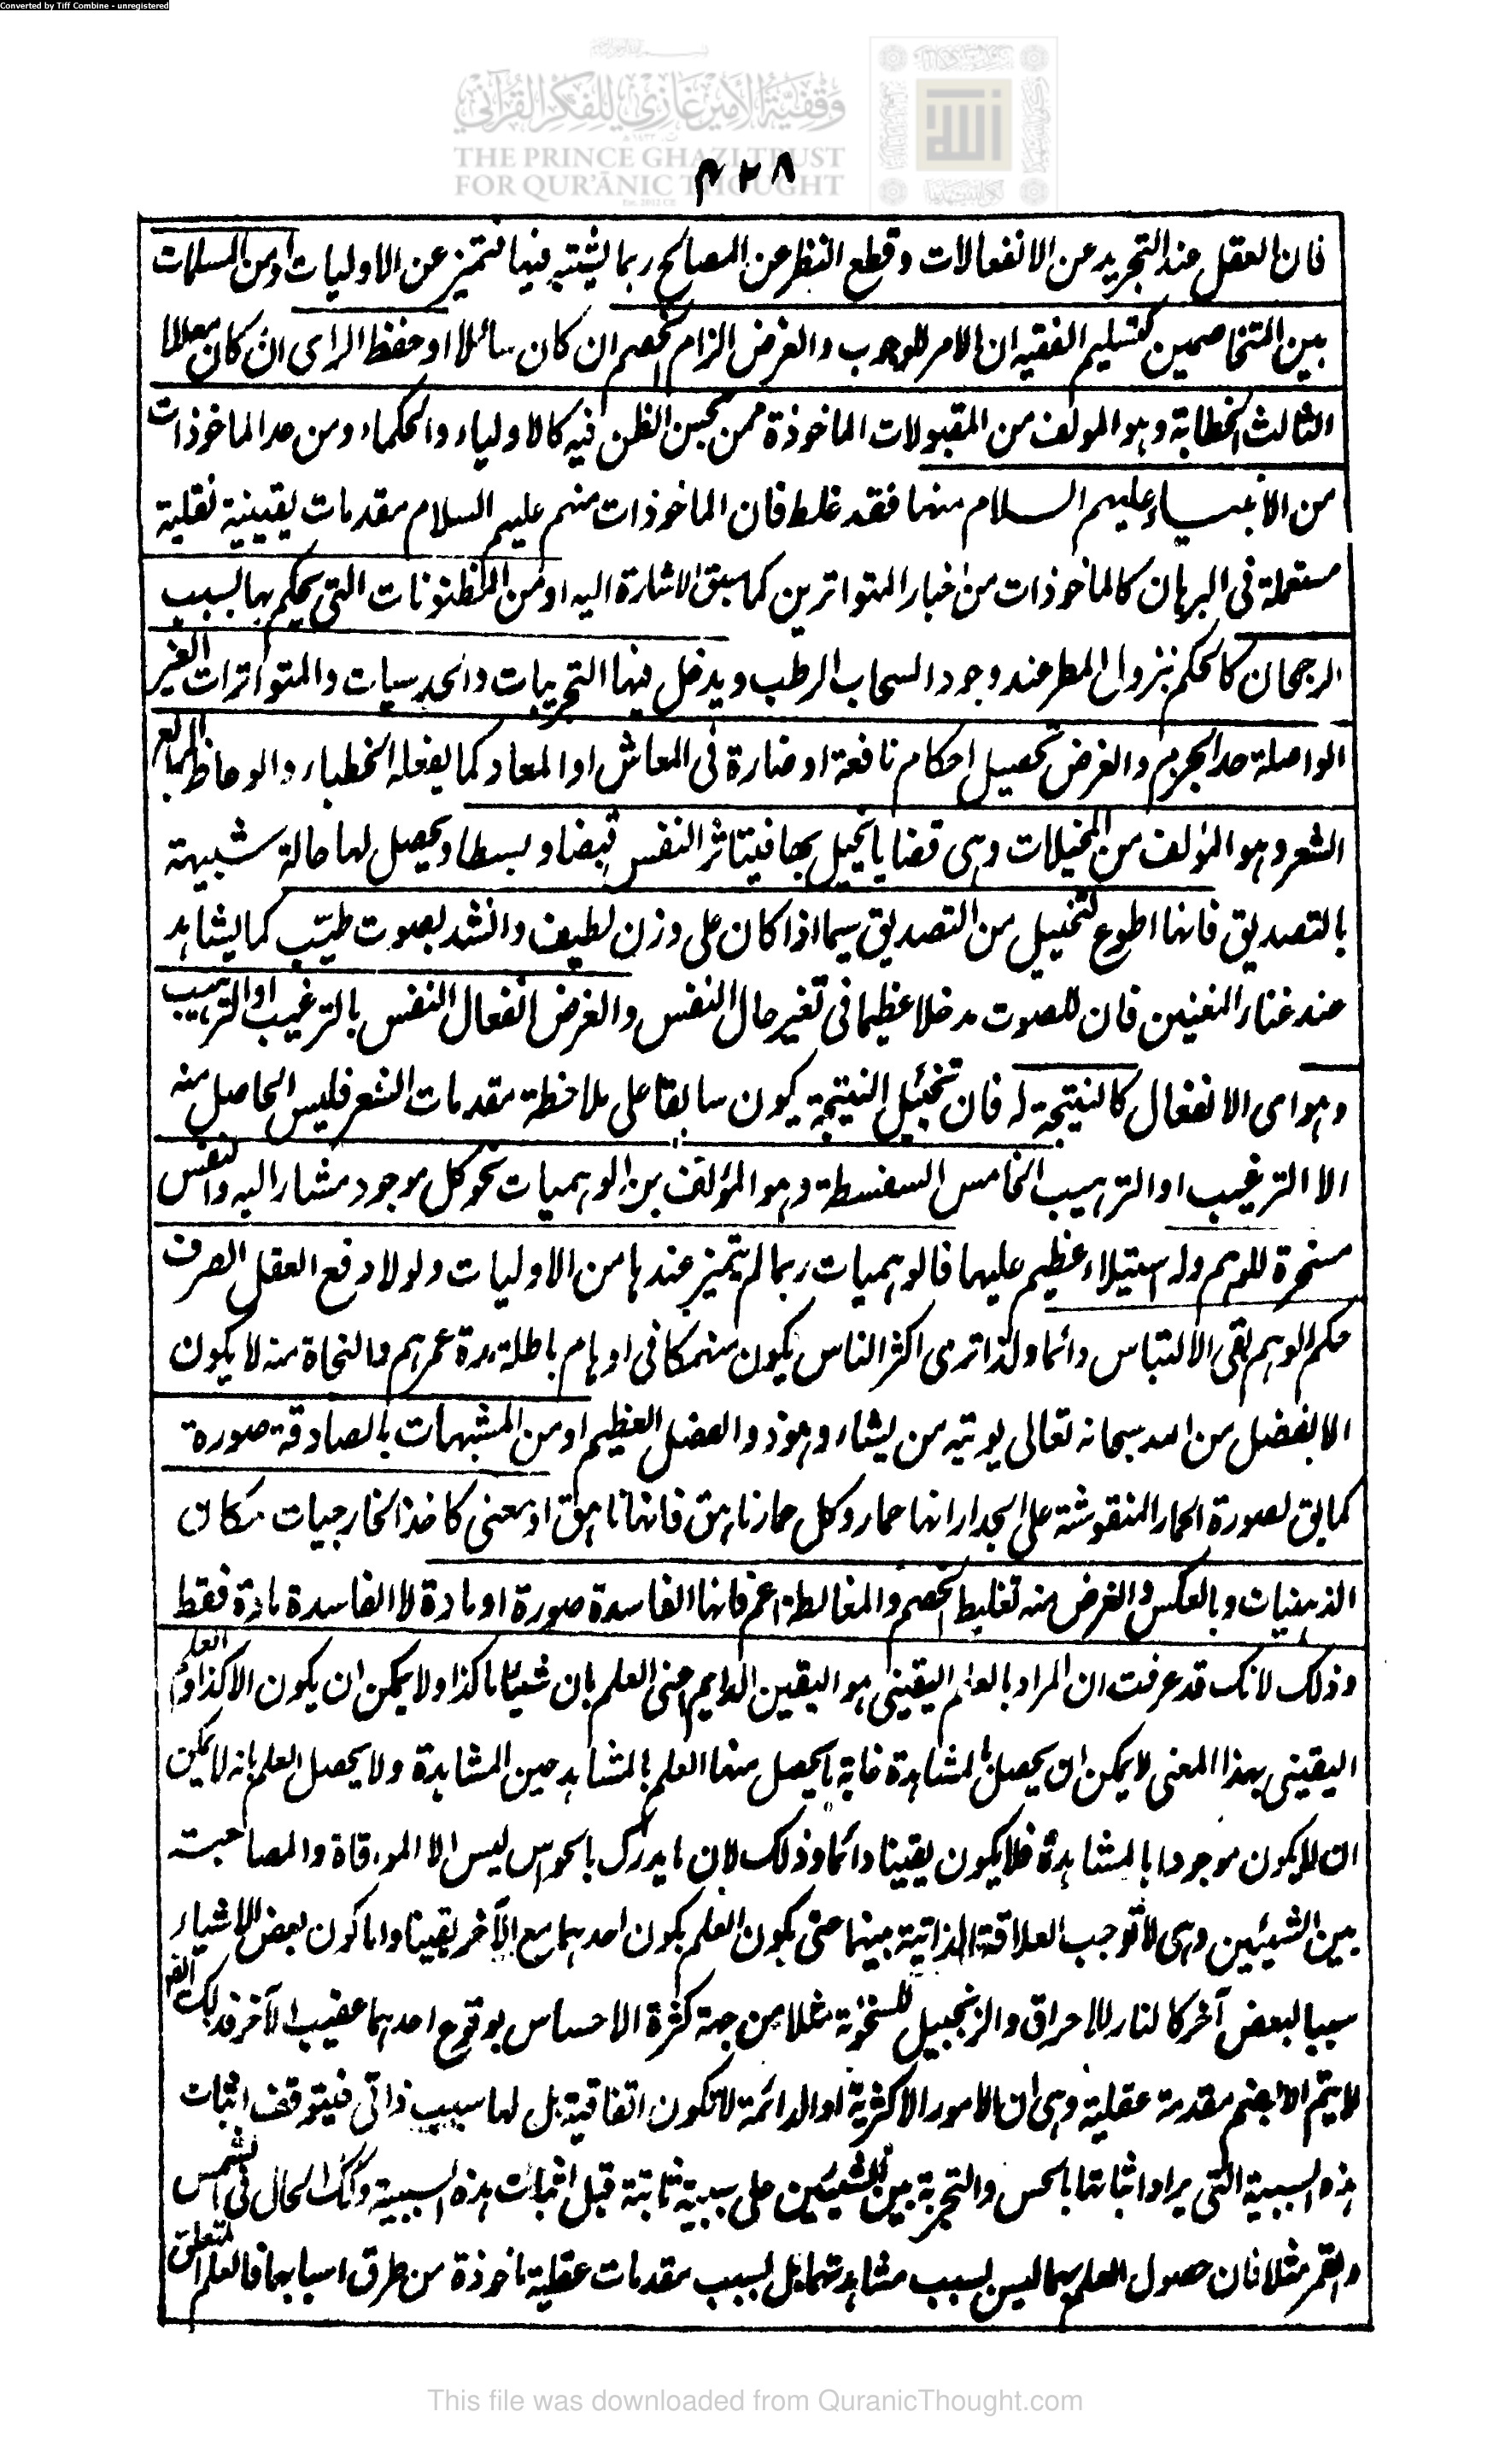 Converted by Tiff Combine - unregistered
وقفية الأمير غازي للفكر القرآني
THE PRINCE GHAZI TRUST
FOR QUR'ĀNIC THOUGHT
٤٢٨
فان العقل عند التجريد عن الانفعالات وقطع النظر عن المصالح ربما يشتبه فيها فتميز عن الاوليات او من المسلمات
بين المتخاصمين كتسليم الفقيه ان الامر للوجوب والغرض الزام الخصم ان كان سائلا او حفظ الراى ان كان معللا
الثالث الخطابة وهو المولف من المقبولات الماخوذة ممن يحسن الظن فيه كالاولياء والحكماء ومن عد الماخوذات
من الانبياء عليهم السلام منها فقد غلط فان الماخوذات منهم عليهم السلام مقدمات يقينية نقلية
مستعملة فى البرهان كالماخوذات من اخبار المتواترين كما سبق الاشارة اليه او من المظنونات التى يحكم بها بسبب
الرجحان كالحكم بنزول المطر عند وجود السحاب الرطب ويدخل فيها التجربيات والحدسيات والمتواترات الغير
الواصلة حد الجزم والغرض تحصيل احكام نافعة او ضارة فى المعاش او المعاد كما يفعله الخطباء والوعاظ الرابع
الشعر وهو المؤلف من المخيلات وهى قضايا يخيل بها فيتاثر النفس قبضا وبسطا ويحصل لها حالة شبيهة
بالتصديق فانها اطوع لتخييل من التصديق سيما اذا كان على وزن لطيف وانشد بصوت طيب كما يشاهد
عند غناء المغنين فان للصوت مدخلا عظيما فى تغير حال النفس والغرض انفعال النفس بالترغيب او الترهيب
وهو اى الانفعال كالنتيجة له فان تخئيل النتيجة يكون سابقا على ملاحظة مقدمات الشعر فليس الحاصل منه
الا الترغيب او الترهيب الخامس السفسطة وهو المؤلف من الوهميات نحو كل موجود مشار اليه والنفس
مسخرة للوهم وله استيلاء عظيم عليها فالوهميات ربما لم يتميز عندها من الاوليات ولولا دفع العقل الصرف
حكم الوهم بقى الالتباس دائما ولذا ترى اكثر الناس يكون منهمكا فى اوهام باطلة مدة عمرهم والنجاة منه لا يكون
الا بفضل من الله سبحانه تعالى يوتيه من يشاء وهو ذو الفضل العظيم او من المشبهات بالصادقة صورة
كما يق لصورة الحمار المنقوشة على الجدار انها حمار وكل حمار ناهق فانها ناهق او معنى كاخذ الخارجيات مكان
الذهنيات وبالعكس والغرض منه تغليط الخصم والمغالطة اعم فانها الفاسدة صورة او مادة لا الفاسدة مادة فقط
وذلك لانك قد عرفت ان المراد بالعلم اليقينى هو اليقين الدايم اعنى العلم بان شيئا ما كذا ولا يمكن ان يكون الا كذا والعلم
اليقينى بهذا المعنى لا يمكن ان يحصل بالمشاهدة غاية ما يحصل منها العلم بالمشاهد حين المشاهدة ولا يحصل العلم بانه لا يمكن
ان لا يكون موجودا بالمشاهدة فلا يكون يقينا دائما وذلك لان ما يدرك بالحواس ليس الا الموافاة والمصاحبة
بين الشيئين وهى لا توجب العلاقة الذاتية بينهما حتى يكون العلم بكون احدهما مع الآخر يقينا واما كون بعض الاشياء
سببا لبعض آخر كالنار للاحراق والزنجبيل للسخونة مثلا من جهة كثرة الاحساس بوقوع احدهما عقيب الآخر فذلك
لا يتم الا بضم مقدمة عقلية وهى ان الامور الاكثرية او الدائمة لا تكون اتفاقية بل لها سبب ذاتى فيتوقف اثبات
هذه السببية التى يراد اثباتها بالحس والتجربة بين الشيئين على سببية ثابتة قبل اثبات هذه السببية وكذلك الحال فى الشمس
والقمر مثلا فان حصول العلم بهما ليس بسبب مشاهدتهما بل بسبب مقدمات عقلية ماخوذة من طرق اسبابهما فالعلم المتعلق
This file was downloaded from QuranicThought.com